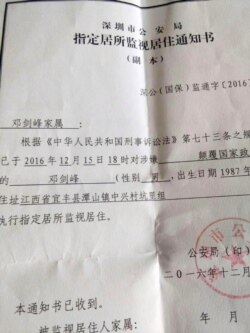 深圳市公安局
指定居所监视居住通知书
（副本）
深公（国保）监通字〔2016
邓剑峰家属：
根据《中华人民共和国刑事诉讼法》第七十三条之规
已于2016年12月15日18时对涉嫌 颠覆国家政
的 邓剑峰 （性别 男 ，出生日期1987年
住址江西省宜丰县潭山镇中兴村坑里组
执行指定居所监视居住。
公安局（印）
二〇一六年十二月
本通知书已收到。
被监视居住人家属： 年 月